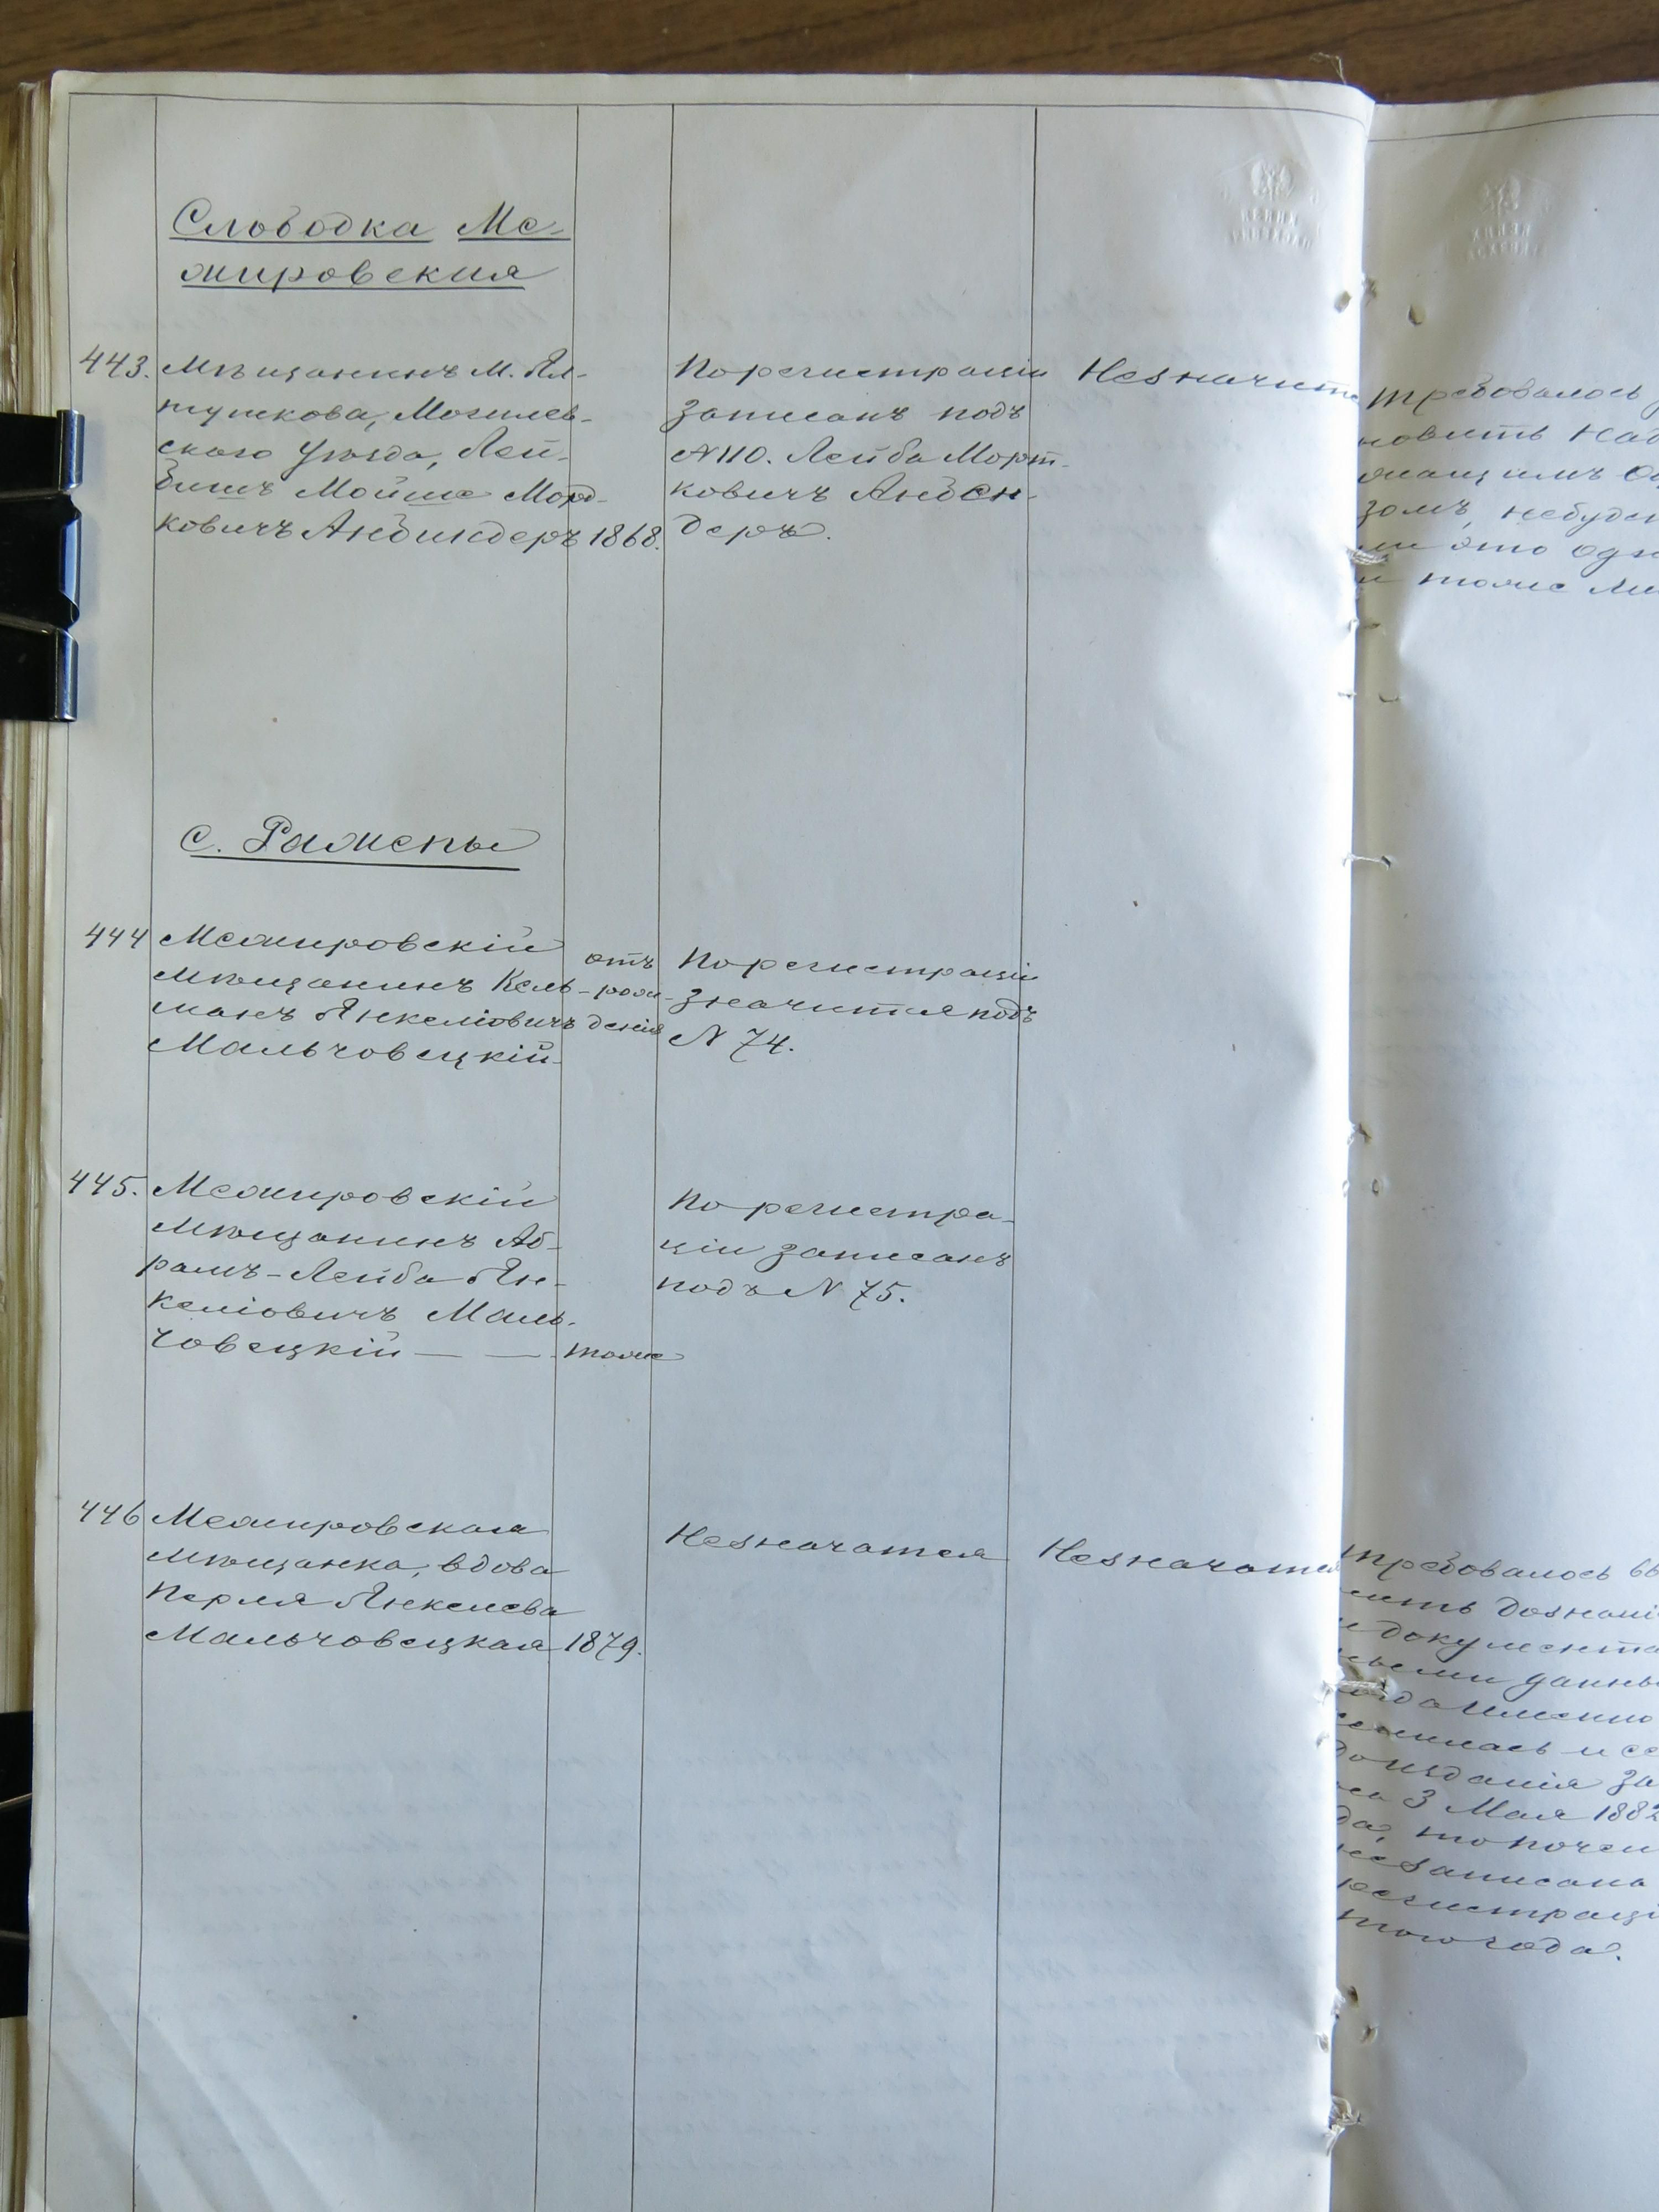 Слободка Ме-
жировская
443. Мѣщанинъ м. Ял-
тушкова, Могилев-
скаго уѣзда, Лей-
бишъ Мойше Морд-
ковичъ Айбиндеръ 1868.
По регистраціи
записанъ подъ
№ 110. Лейба Морт-
ковичъ Айбен-
деръ.
Незначится
требовалось
новить над
жащимъ об
зомъ, небуде
ли это одн
и тоже ли
с. Рахмены
444 Межировскій
мѣщанинъ Кель-
манъ Янкеліовичъ
Мальчовецкій
отъ
рож-
денія
По регистраціи
значится подъ
№ 74.
445. Межировскій
мѣщанинъ Аб-
рамъ-Лейба Ян-
келіовичъ Маль-
човецкій — — тоже
По регистра-
ціи записанъ
подъ № 75.
446 Межировская
мѣщанка, вдова
Перля Янкелева
Мальчовецкая 1879.
Незначится
Незначится
требовалось вы
нить дознані
и документа
ными данны
когда именно
селилась и се
до изданія за
на 3 Мая 1882
да, то почем
незаписана
регистраці
того года.